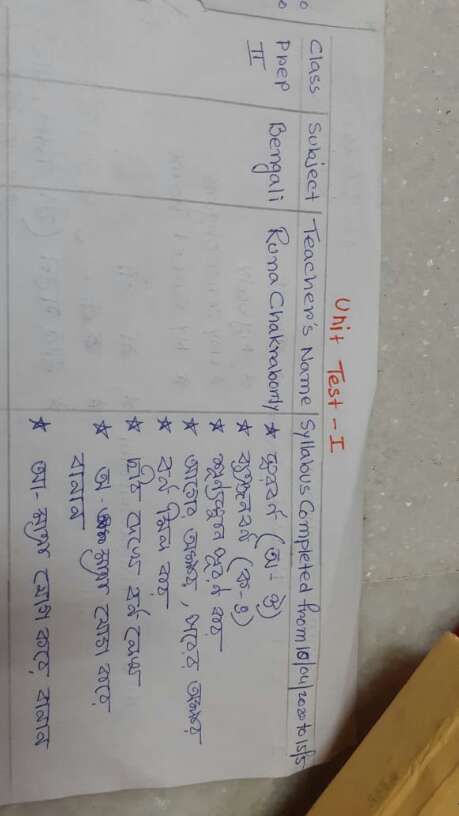 Unit Test - I
Class Subject Teacher's Name Syllabus Completed from 10/04/2020 to 15/5
Prep II Bengali Runa Chakraborty ★ স্বরবর্ণ (অ - ঔ)
★ ব্যঞ্জনবর্ণ (ক - ঁ)
★ শূন্যস্থান পূরণ কর
★ আগের অক্ষর, পরের অক্ষর
★ বর্ণ চিনে কর
★ ছবি দেখে বর্ণ লেখ
★ অ - কার যোগ করে
বানান
★ আ - কার যোগ করে, বানান